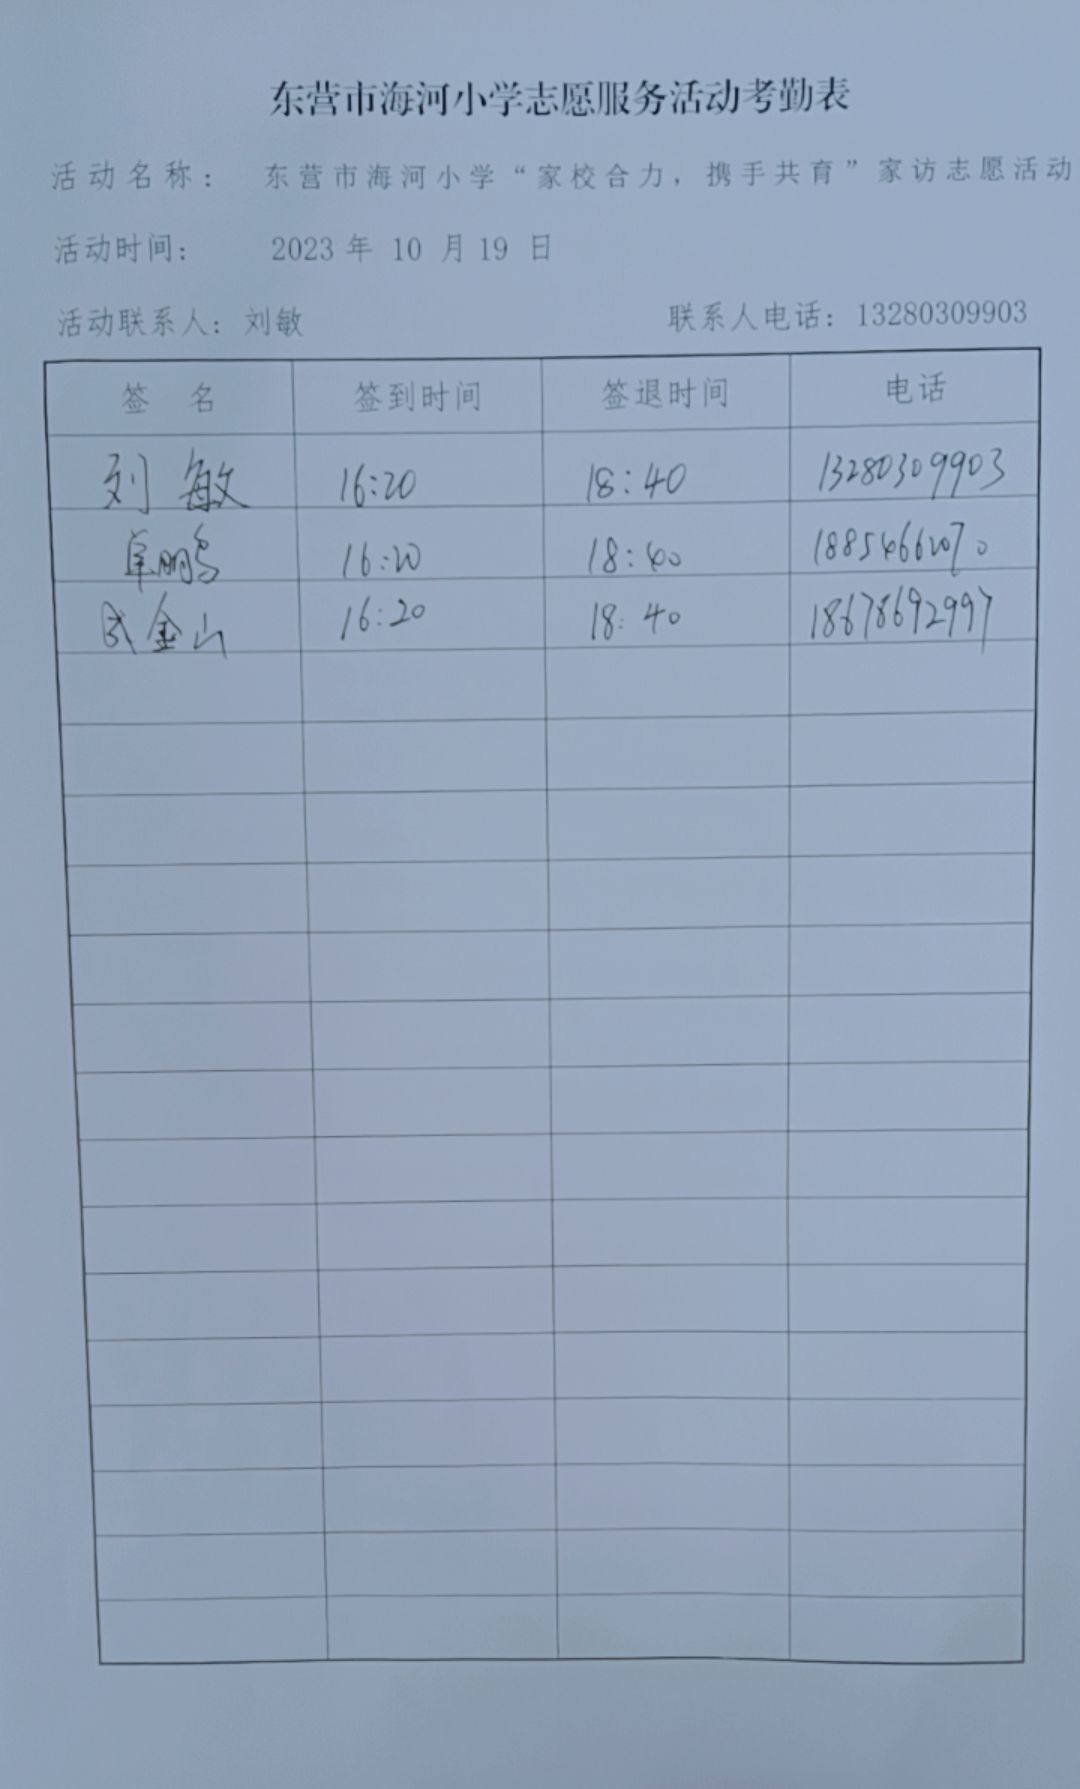 东营市海河小学志愿服务活动考勤表
活动名称： 东营市海河小学“家校合力，携手共育”家访志愿活动
活动时间： 2023 年 10 月 19 日
活动联系人：刘敏 联系人电话：13280309903
签 名 签到时间 签退时间 电话
刘敏 16:20 18:40 13280309903
16:20 18:40
金山 16:20 18:40 18678692997